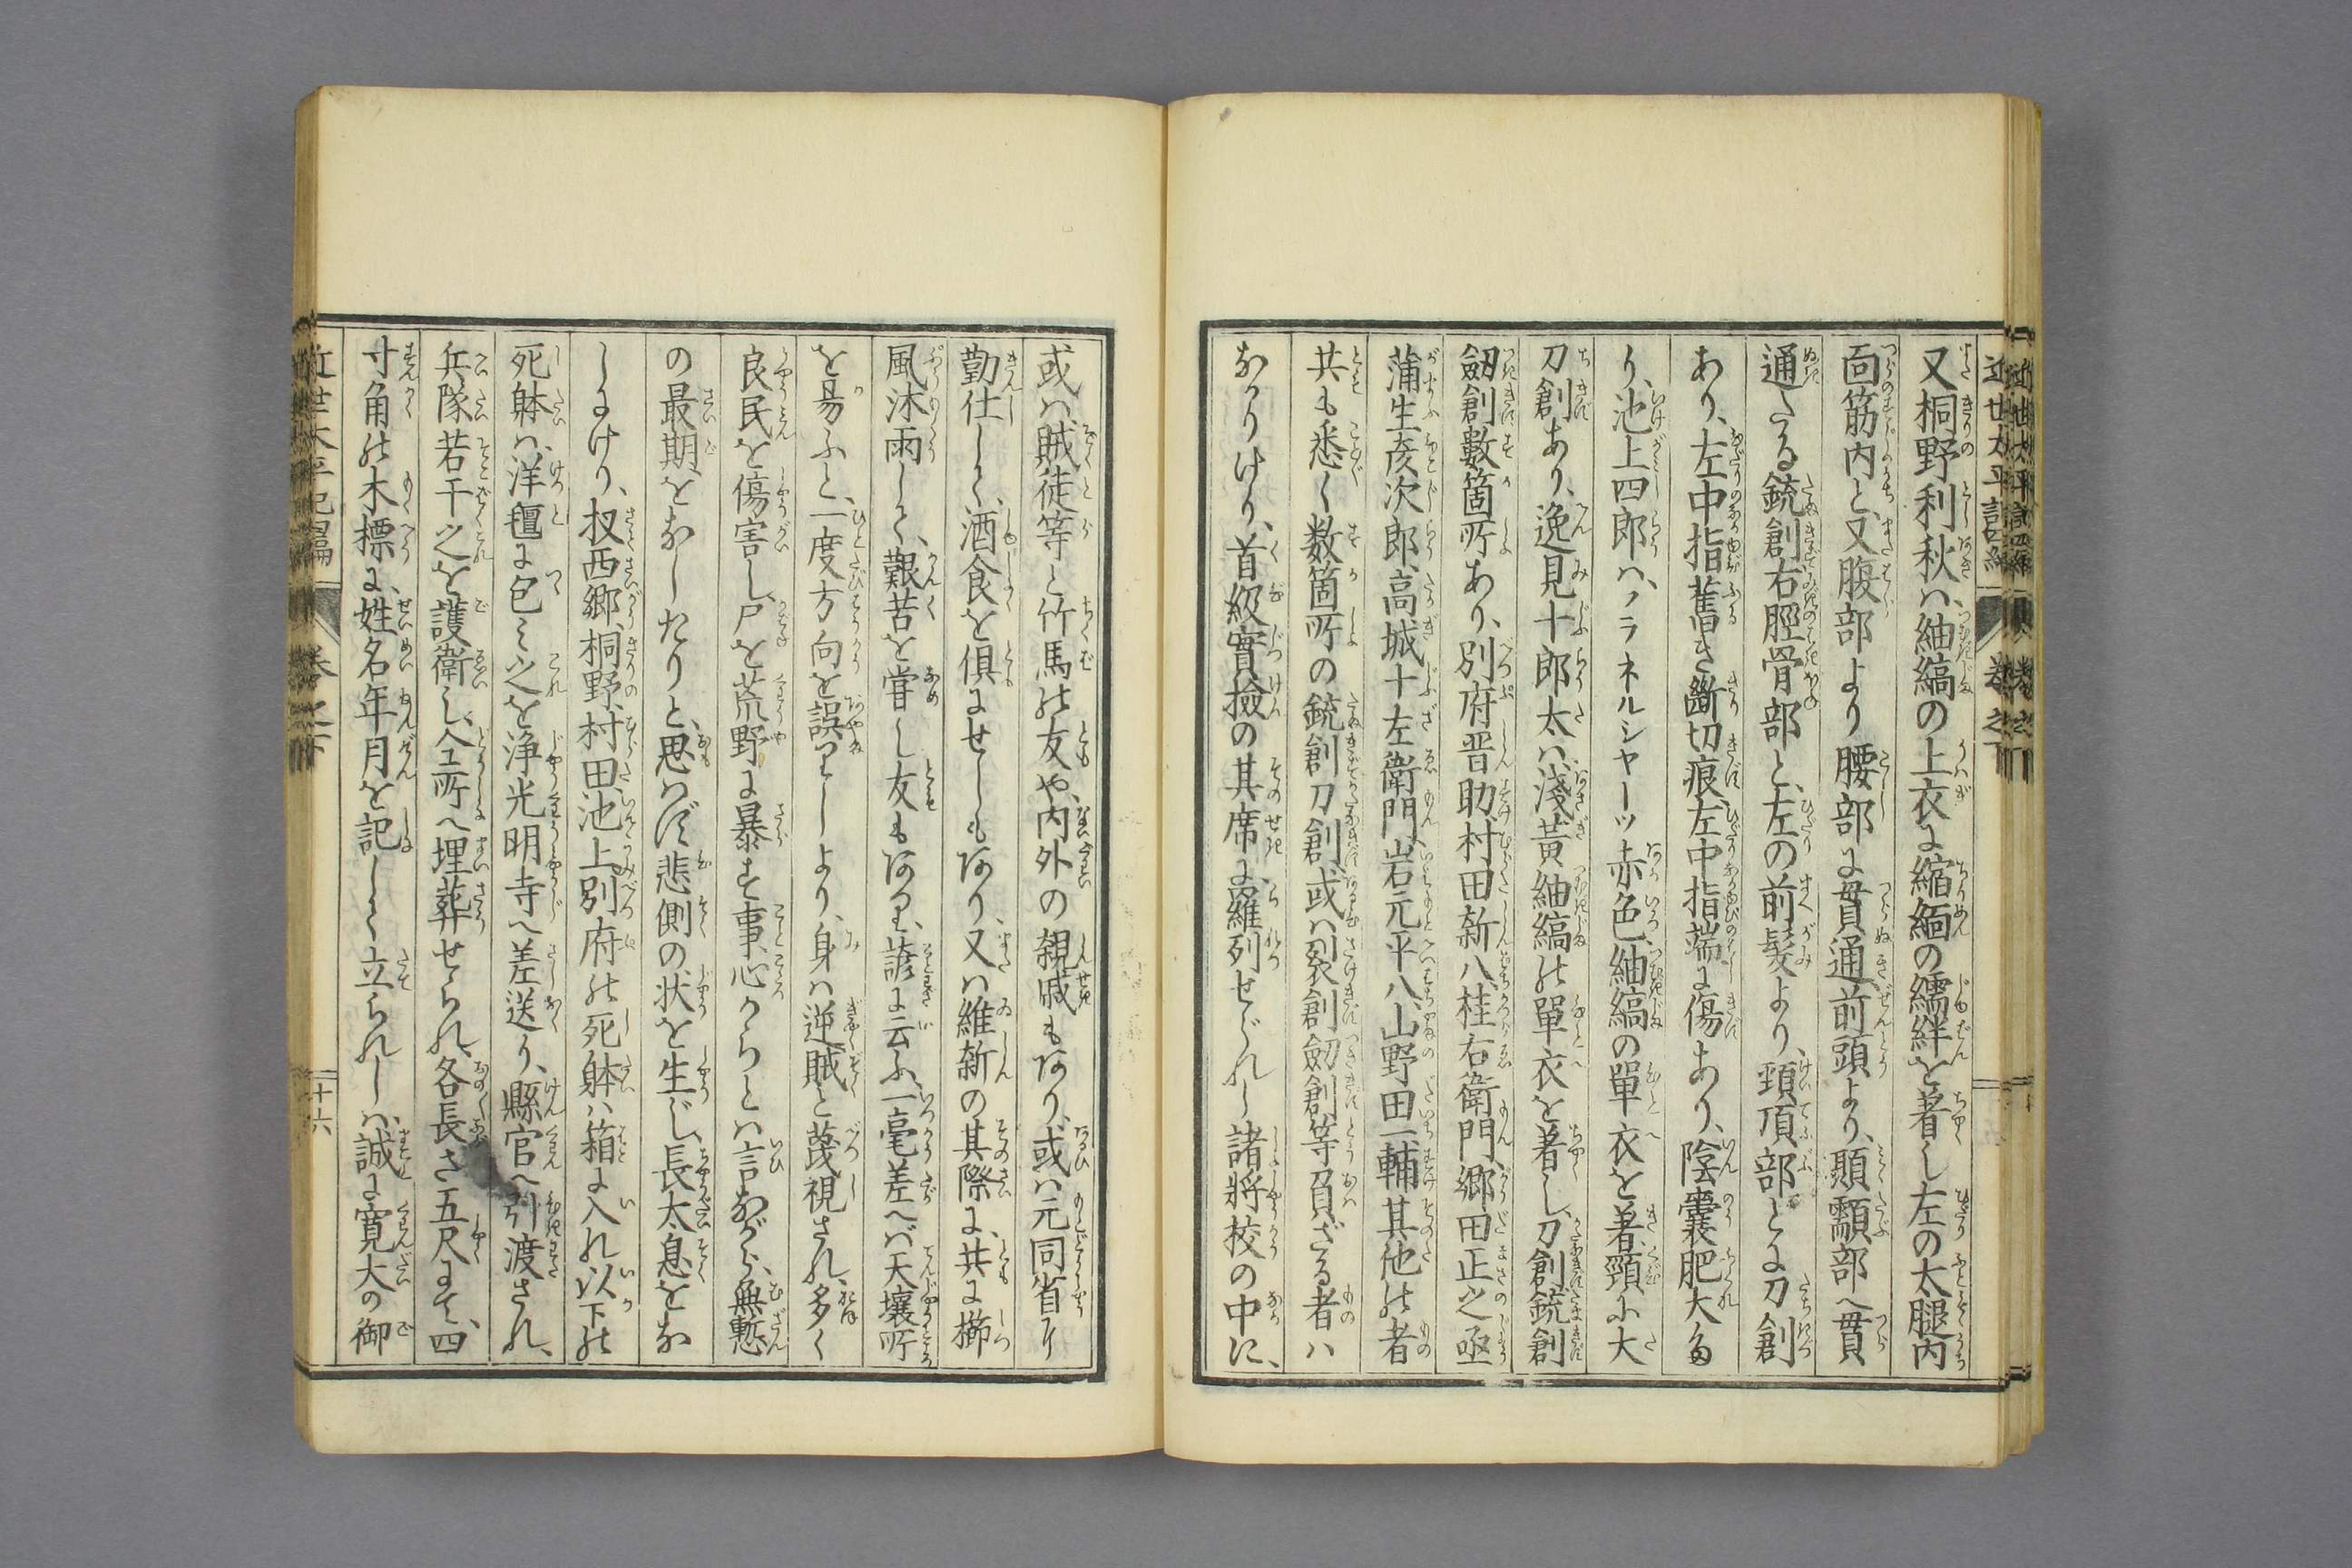 又桐野利秋ハ、紬縞の上衣に縮緬の繻絆を著し左の太腿内
面筋内と、又腹部より腰部に貫通、前頭より、顳顬部へ貫
通たる銃創右脛骨部と、左の前髪より、頸頂部とに刀創
あり、左中指舊き斷切痕左中指端に傷あり、陰嚢肥大な
り、池上四郎ハ、フラネルシヤーツ赤色、紬縞の單衣を著、頸に大
刀創あり、逸見十郎太ハ、淺黃紬縞の單衣を著し、刀創銃創
劔創數箇所あり、別府晋助、村田新八、桂右衛門、郷田正之亟
蒲生彦次郎、高城十左衛門、岩元平八、山野田一輔其他の者
共も悉く数箇所の銃創刀創、或ハ裂創劔創等負ざる者ハ
なかりけり、首級實撿の其席に、羅列せられし諸將校の中に、
或ハ賊徒等と竹馬の友や、内外の親戚もあり、或ハ元同省に
勤仕して、酒食を倶にせしもあり、又ハ維新の其際に、共に櫛
風沐雨して、艱苦を嘗し友もあり、諺に云ふ、一毫差へバ天壤所
を易ふと、一度方向を誤りしより、身ハ逆賊と蔑視され、多く
良民を傷害し、尸を荒野に暴す事、心からとハ言ながら、無慙
の最期をなしたりと、思ハず悲惻の状を生じ、長太息をな
しにけり、扠西郷、桐野、村田、池上、別府の死躰ハ箱に入れ以下の
死躰ハ、洋氊に包み之を浄光明寺へ差送り、縣官へ引渡され、
兵隊若干之を護衛し、仝所へ埋葬せられ、各長さ五尺にて、四
寸角の木標に、姓名年月を記して立られしハ、誠に寛大の御
近世太平記 卷之下
十六